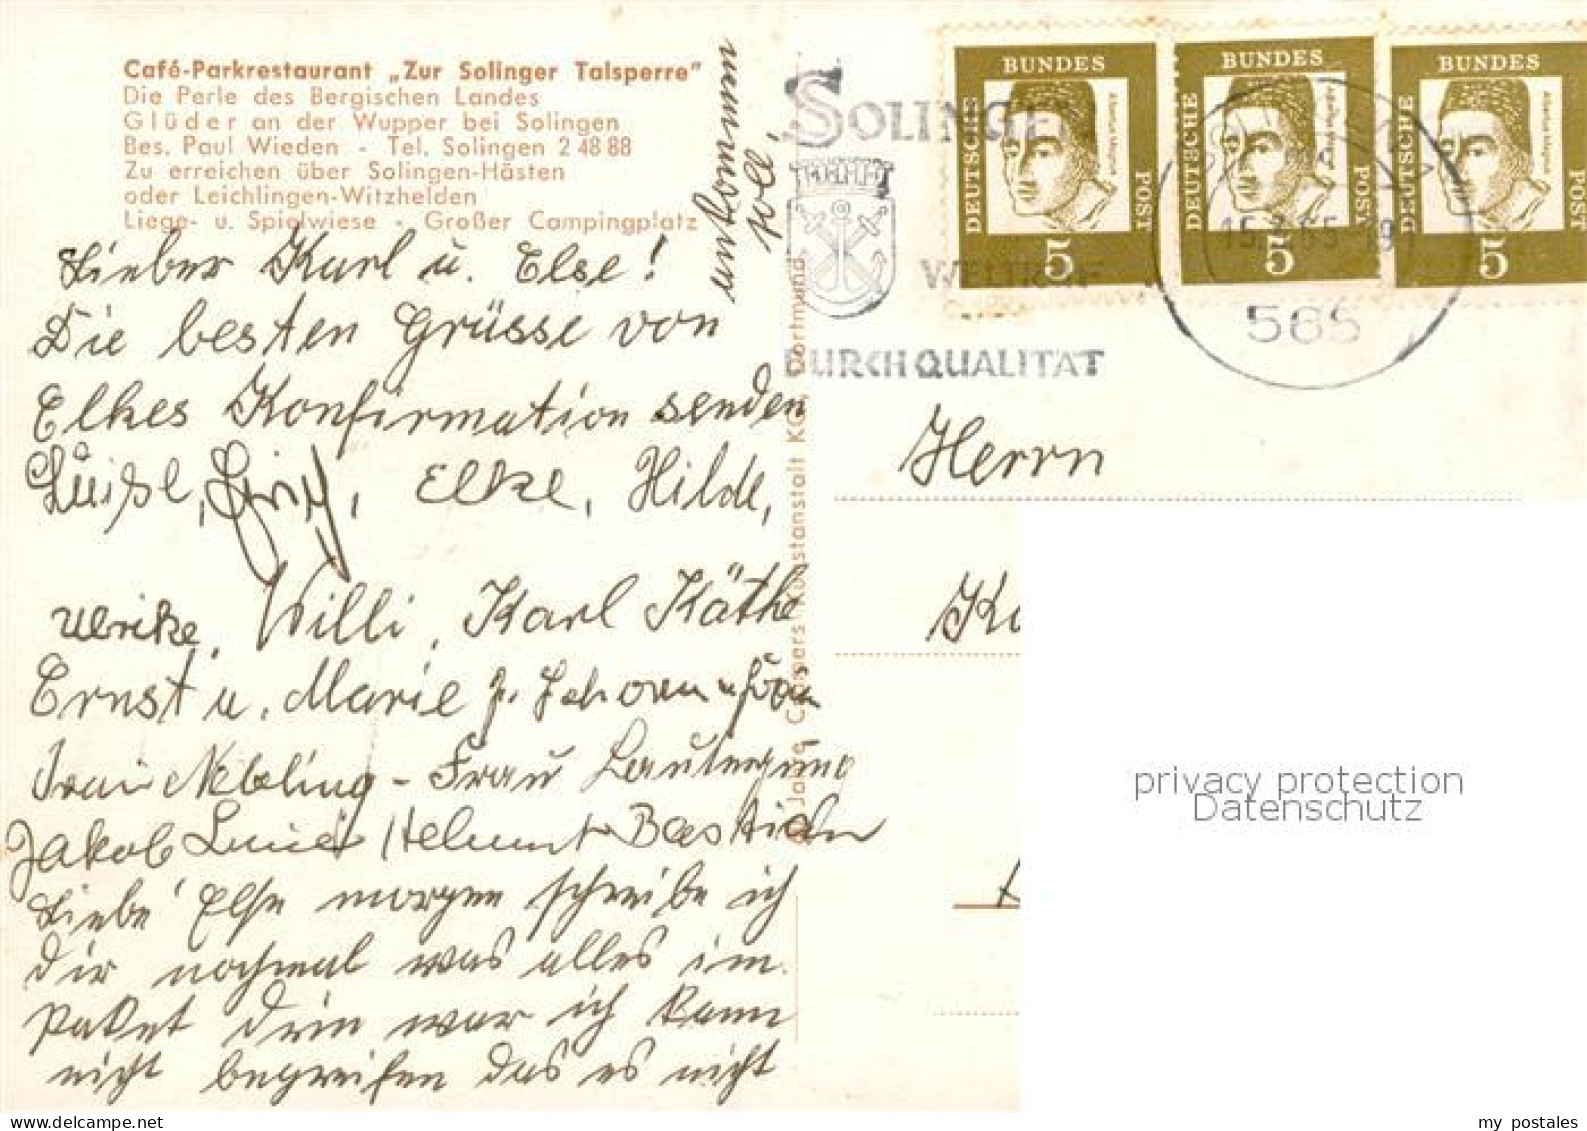 Café-Parkrestaurant „Zur Solinger Talsperre"
Die Perle des Bergischen Landes
Glüder an der Wupper bei Solingen
Bes. Paul Wieden - Tel. Solingen 2 48 88
Zu erreichen über Solingen-Hästen
oder Leichlingen-Witzhelden
Liege- u. Spielwiese - Großer Campingplatz
Lieber Karl u. Else!
Die besten Grüsse von
Elkes Konfirmation senden
Luise, Elke, Hilde,
Ulrike, Willi, Karl Käthe
Ernst u. Marie
Frau Nebeling - Frau
Jakob Helmut Bastian
Liebe Else morgen schreibe ich
dir nochmal was alles im
Paket drin war ich kann
nicht begreifen das es nicht
ankommen
soll.
Cramers Kunstanstalt KG, Dortmund
SOLINGEN
WELTRUF
DURCH QUALITÄT
BUNDES
DEUTSCHE
POST
5
Albertus Magnus
BUNDES
DEUTSCHE
POST
5
Albertus Magnus
BUNDES
DEUTSCHE
POST
5
Albertus Magnus
565
Herrn
privacy protection
Datenschutz
my postales